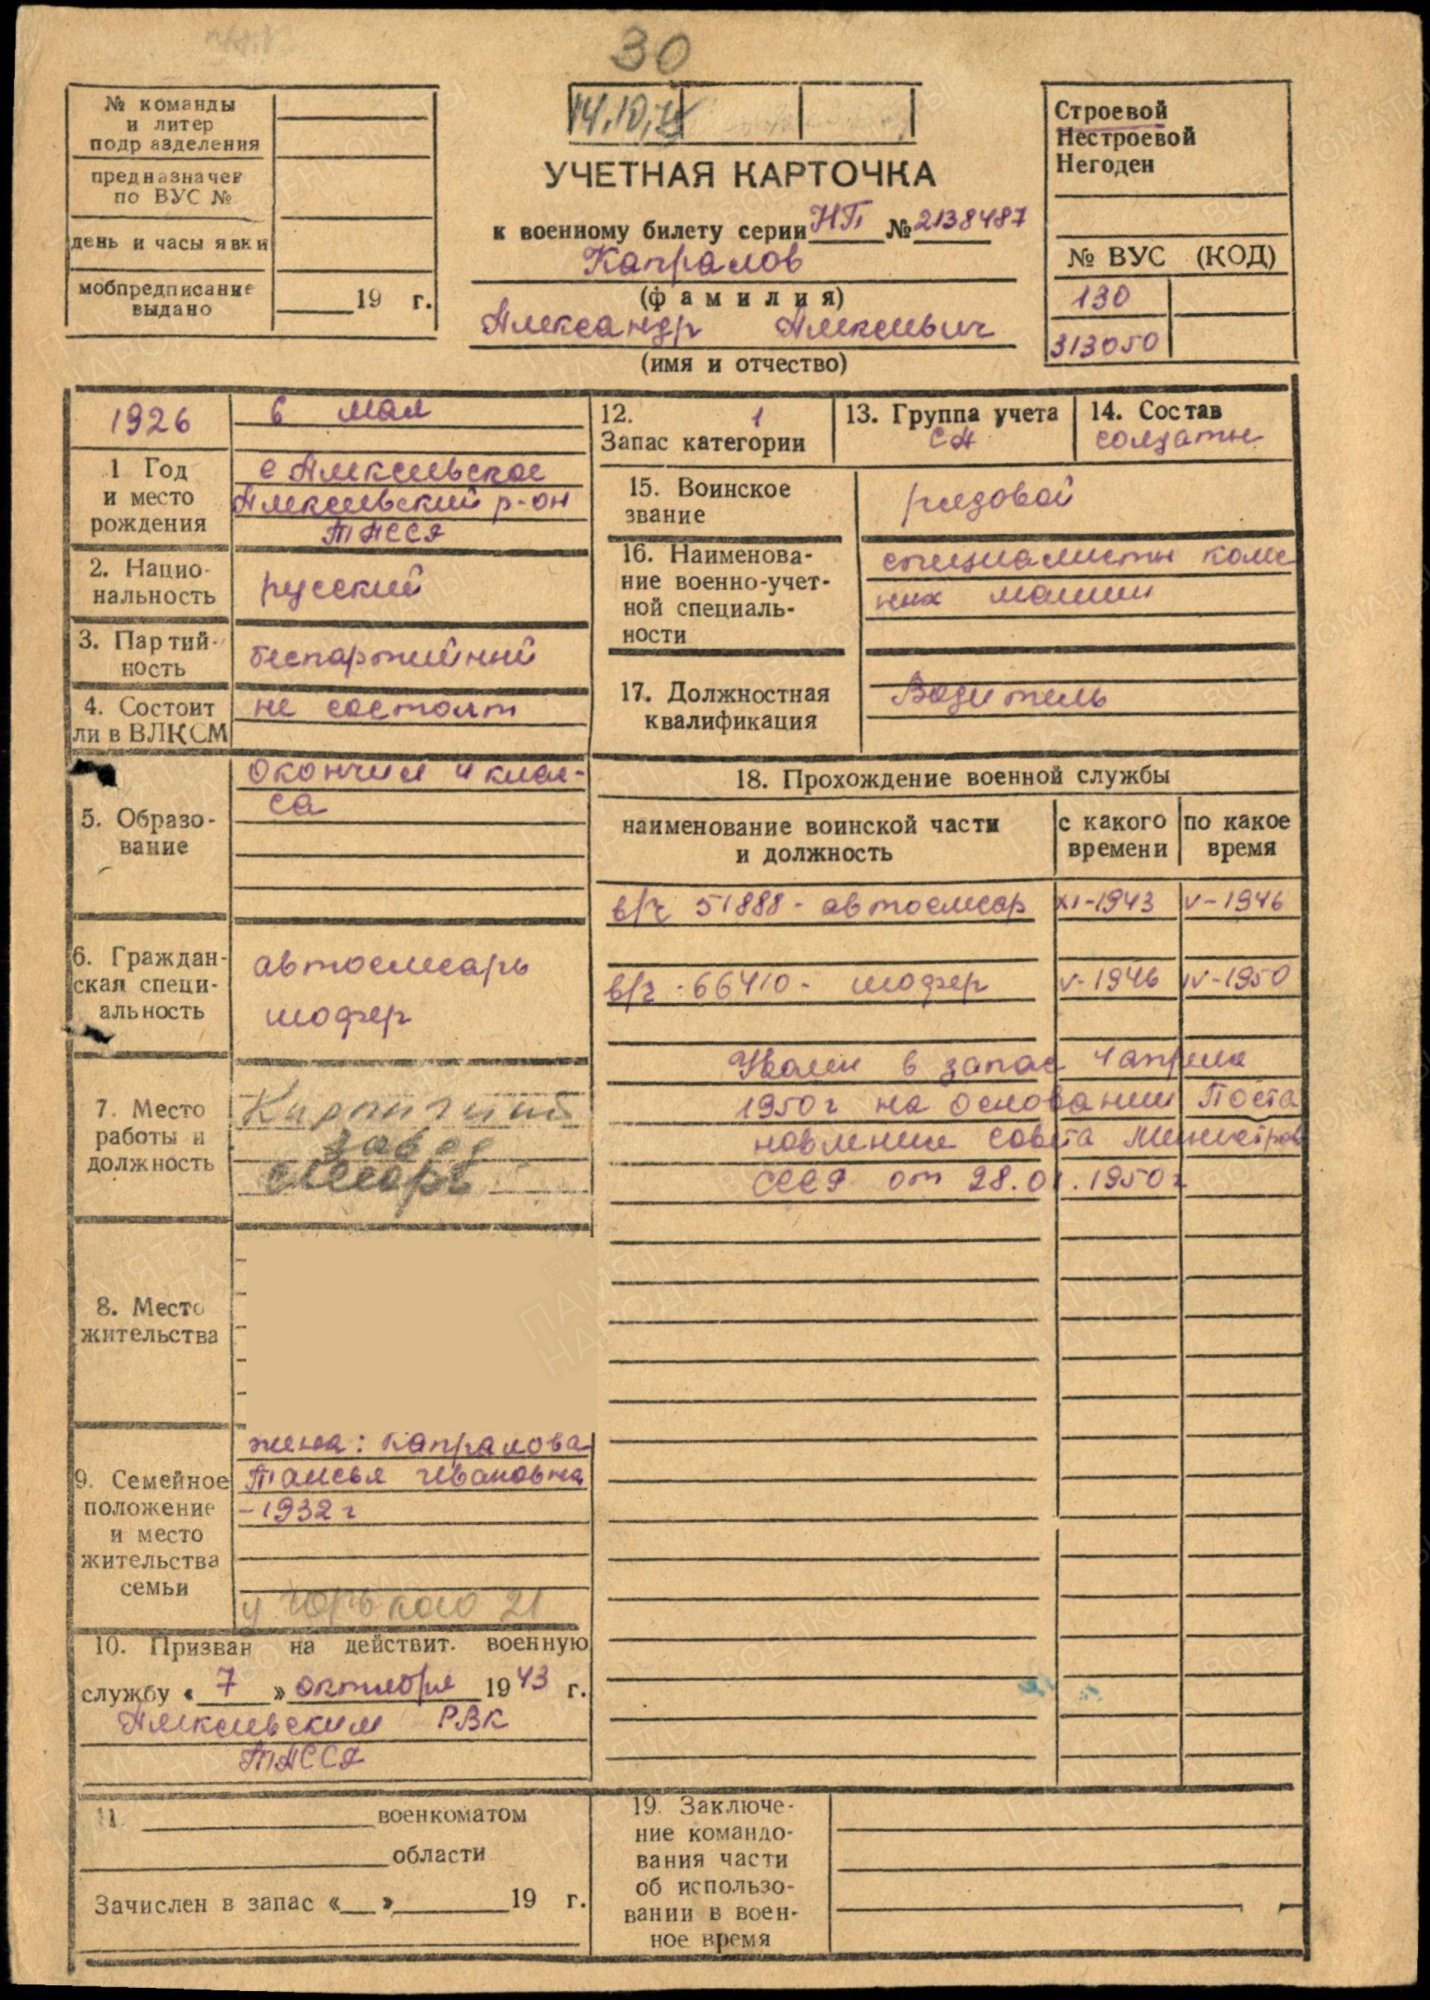 30
№ команды
и литер
подразделения
предназначен
по ВУС №
день и часы явки
мобпредписание
выдано
19 г.
14.10.75
УЧЕТНАЯ КАРТОЧКА
к военному билету серии НП № 2138487
Капралов
(фамилия)
Александр Алексеевич
(имя и отчество)
Строевой
Нестроевой
Негоден
№ ВУС (КОД)
130
313050
1926
6 мая
1 Год
и место
рождения
с Алексеевское
Алексеевский р-он
ТАССР
2. Нацио-
нальность
русский
3. Партий-
ность
беспартийный
4. Состоит
ли в ВЛКСМ
не состоит
5. Образо-
вание
окончил 4 клас-
са
6. Граждан-
ская специ-
альность
автослесарь
шофер
7. Место
работы и
должность
Кирпичный
завод
слесарь
8. Место
жительства
9. Семейное
положение
и место
жительства
семьи
жена: Капралова
Таисья Ивановна
-1932 г
у Горького 21
10. Призван на действит. военную
службу «7» октября 1943 г.
Алексеевским РВК
ТАССР
11. военкоматом
области
Зачислен в запас « » 19 г.
12. 1
Запас категории
13. Группа учета
СА
14. Состав
солдаты
15. Воинское
звание
рядовой
16. Наименова-
ние военно-учет-
ной специаль-
ности
специалисты колес
ных машин
17. Должностная
квалификация
Водитель
18. Прохождение военной службы
наименование воинской части
и должность
с какого
времени
по какое
время
в/ч 51888 - автослесар XI-1943 V-1946
в/ч -66410- шофер V-1946 IV-1950
Уволен в запас 4 апреля
1950 г на основании Поста
новления Совета Министров
СССР от 28.01.1950 г
19. Заключе-
ние командо-
вания части
об использо-
вании в воен-
ное время